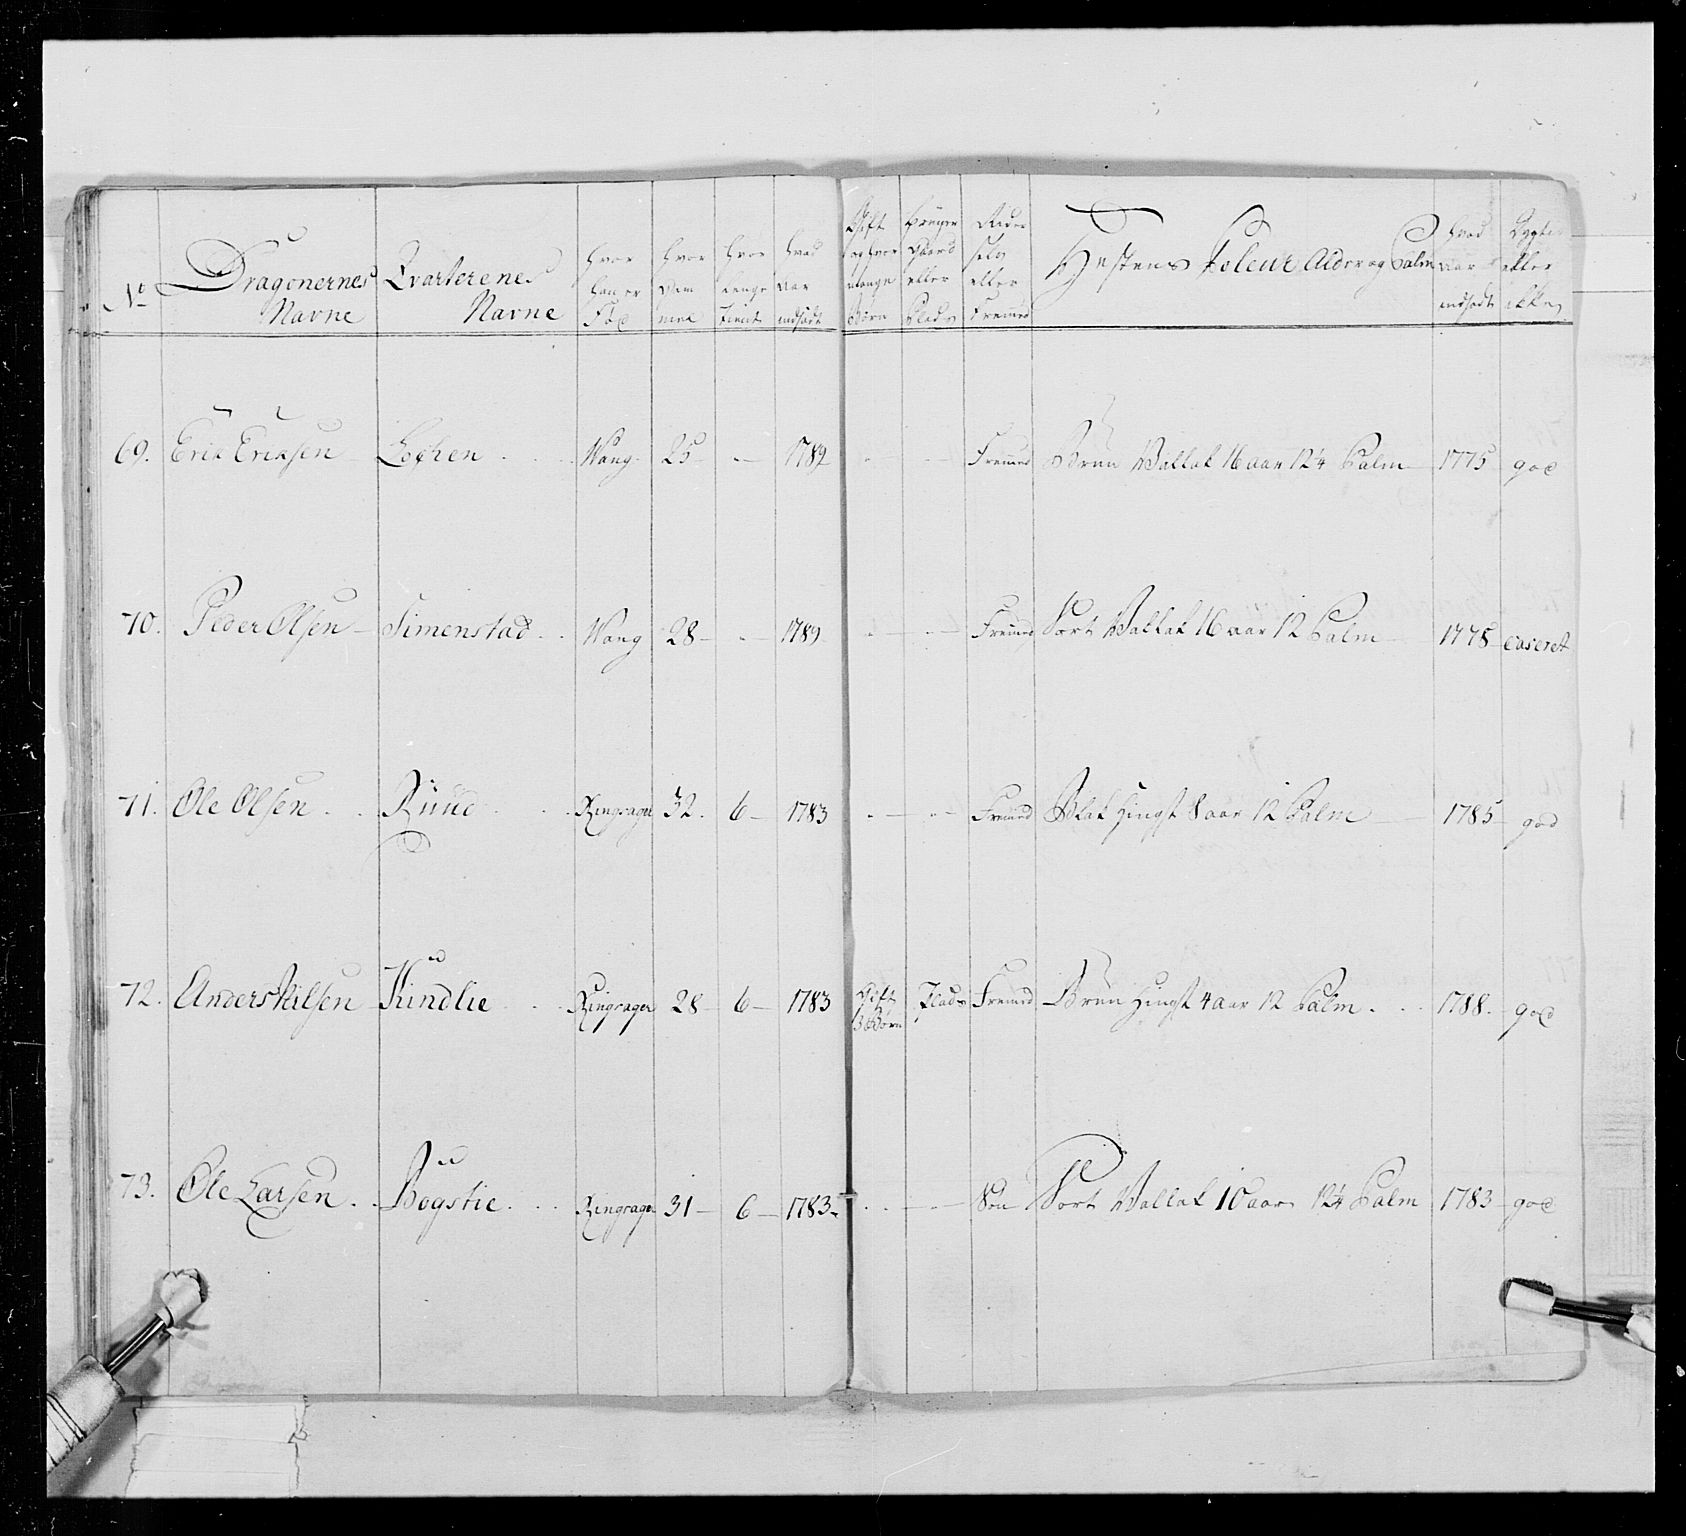 No
Dragonernes Navne
Qvarterenes Navne
hvor han er Fød
hvor gam mel
hvor lenge tient
hvad aar indsadt
Gift og hvor mange Børn
bruger Gaard eller Plads
Rider selv eller Fremed
Hestens Coleur Alder og Palm
hvad aar indsadt
Dygtig eller ikke
69. Erik Eriksen – Løchen . . . Wang – 25 – – 1789 – – Fremed Brun Vallak 16 aar 12¼ Palm – 1775 – god
70. Peder Olsen – Simenstad . . Wang 28 – – 1789 – – Fremed Sort Vallak 16 aar 12 Palm – 1775 – caseret
71. Ole Olsen . . Ruud . . . Ringsager 32 . 6 – 1783 – – Fremed Blak Hingst 8 aar 12 Palm – 1785 – god
72. Anders Nilsen – Kindlie . . Ringsager 28 – 6 – 1783 Gift 3 Børn Plads Fremed Brun Hingst 4 aar 12 Palm . . 1788 . – god
73. Ole Larsen . . Bogstie . . . Ringsager 31 – 6 – 1783 – – – Søn Sort Vallak 10 aar 12¼ Palm 1783 – god